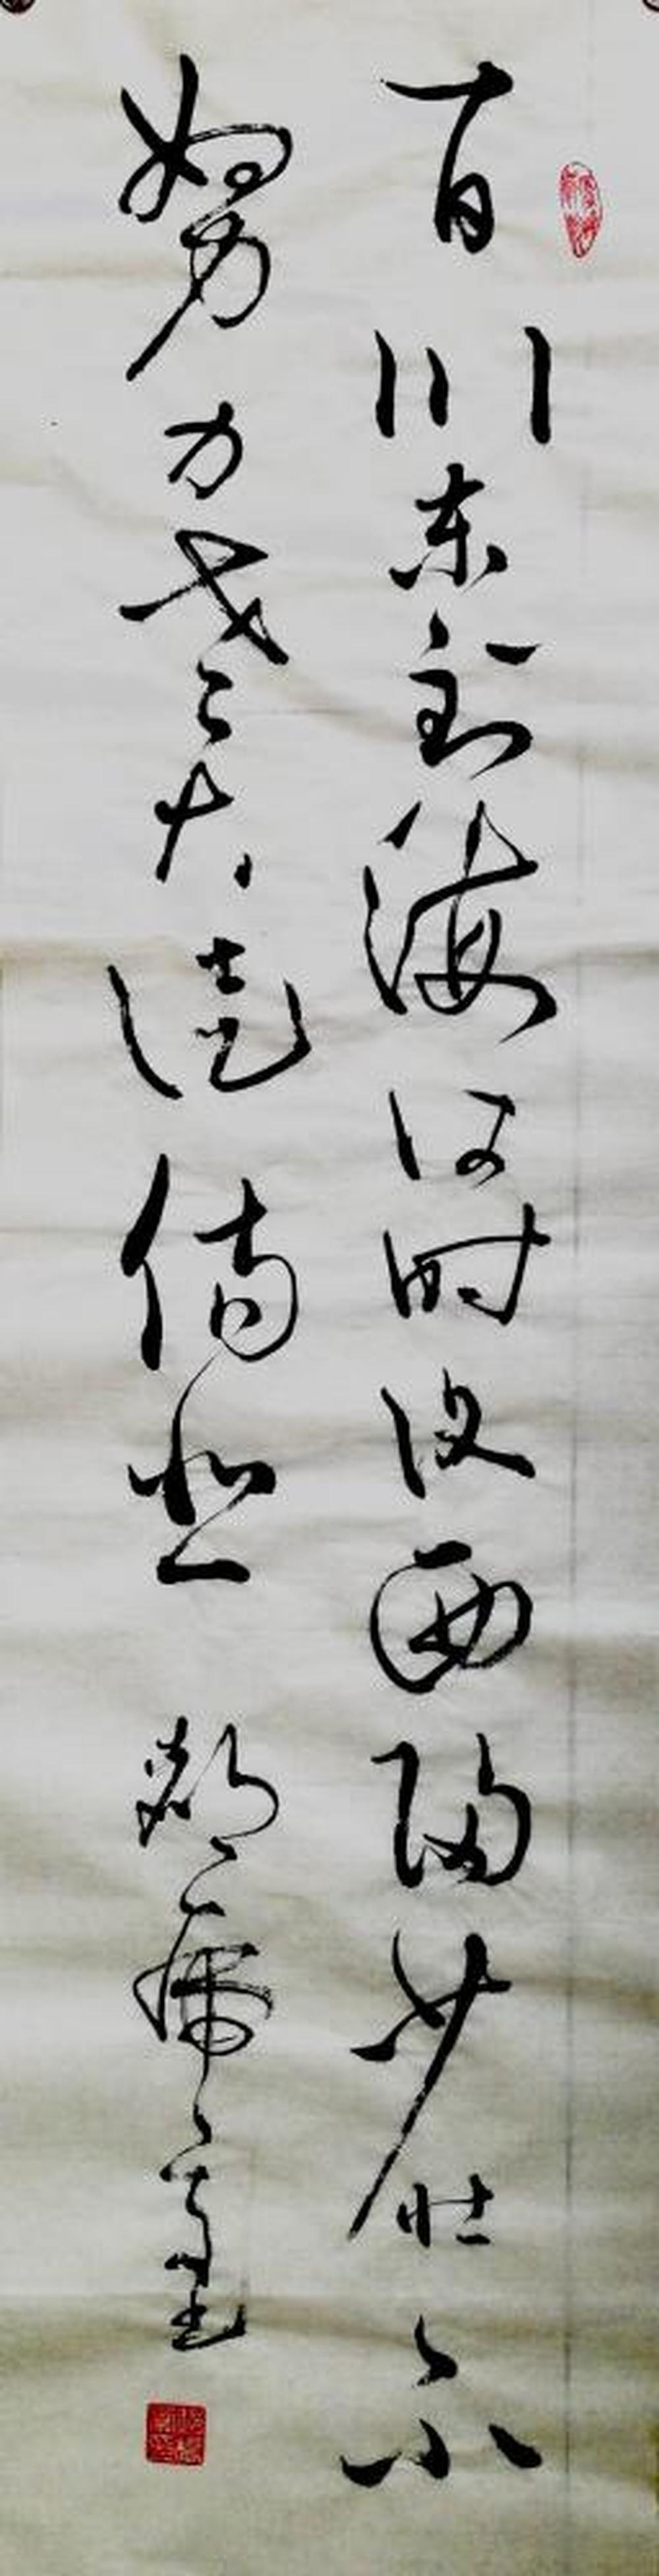 百川东到海何时復西歸少壮不
努力老大徒傷悲